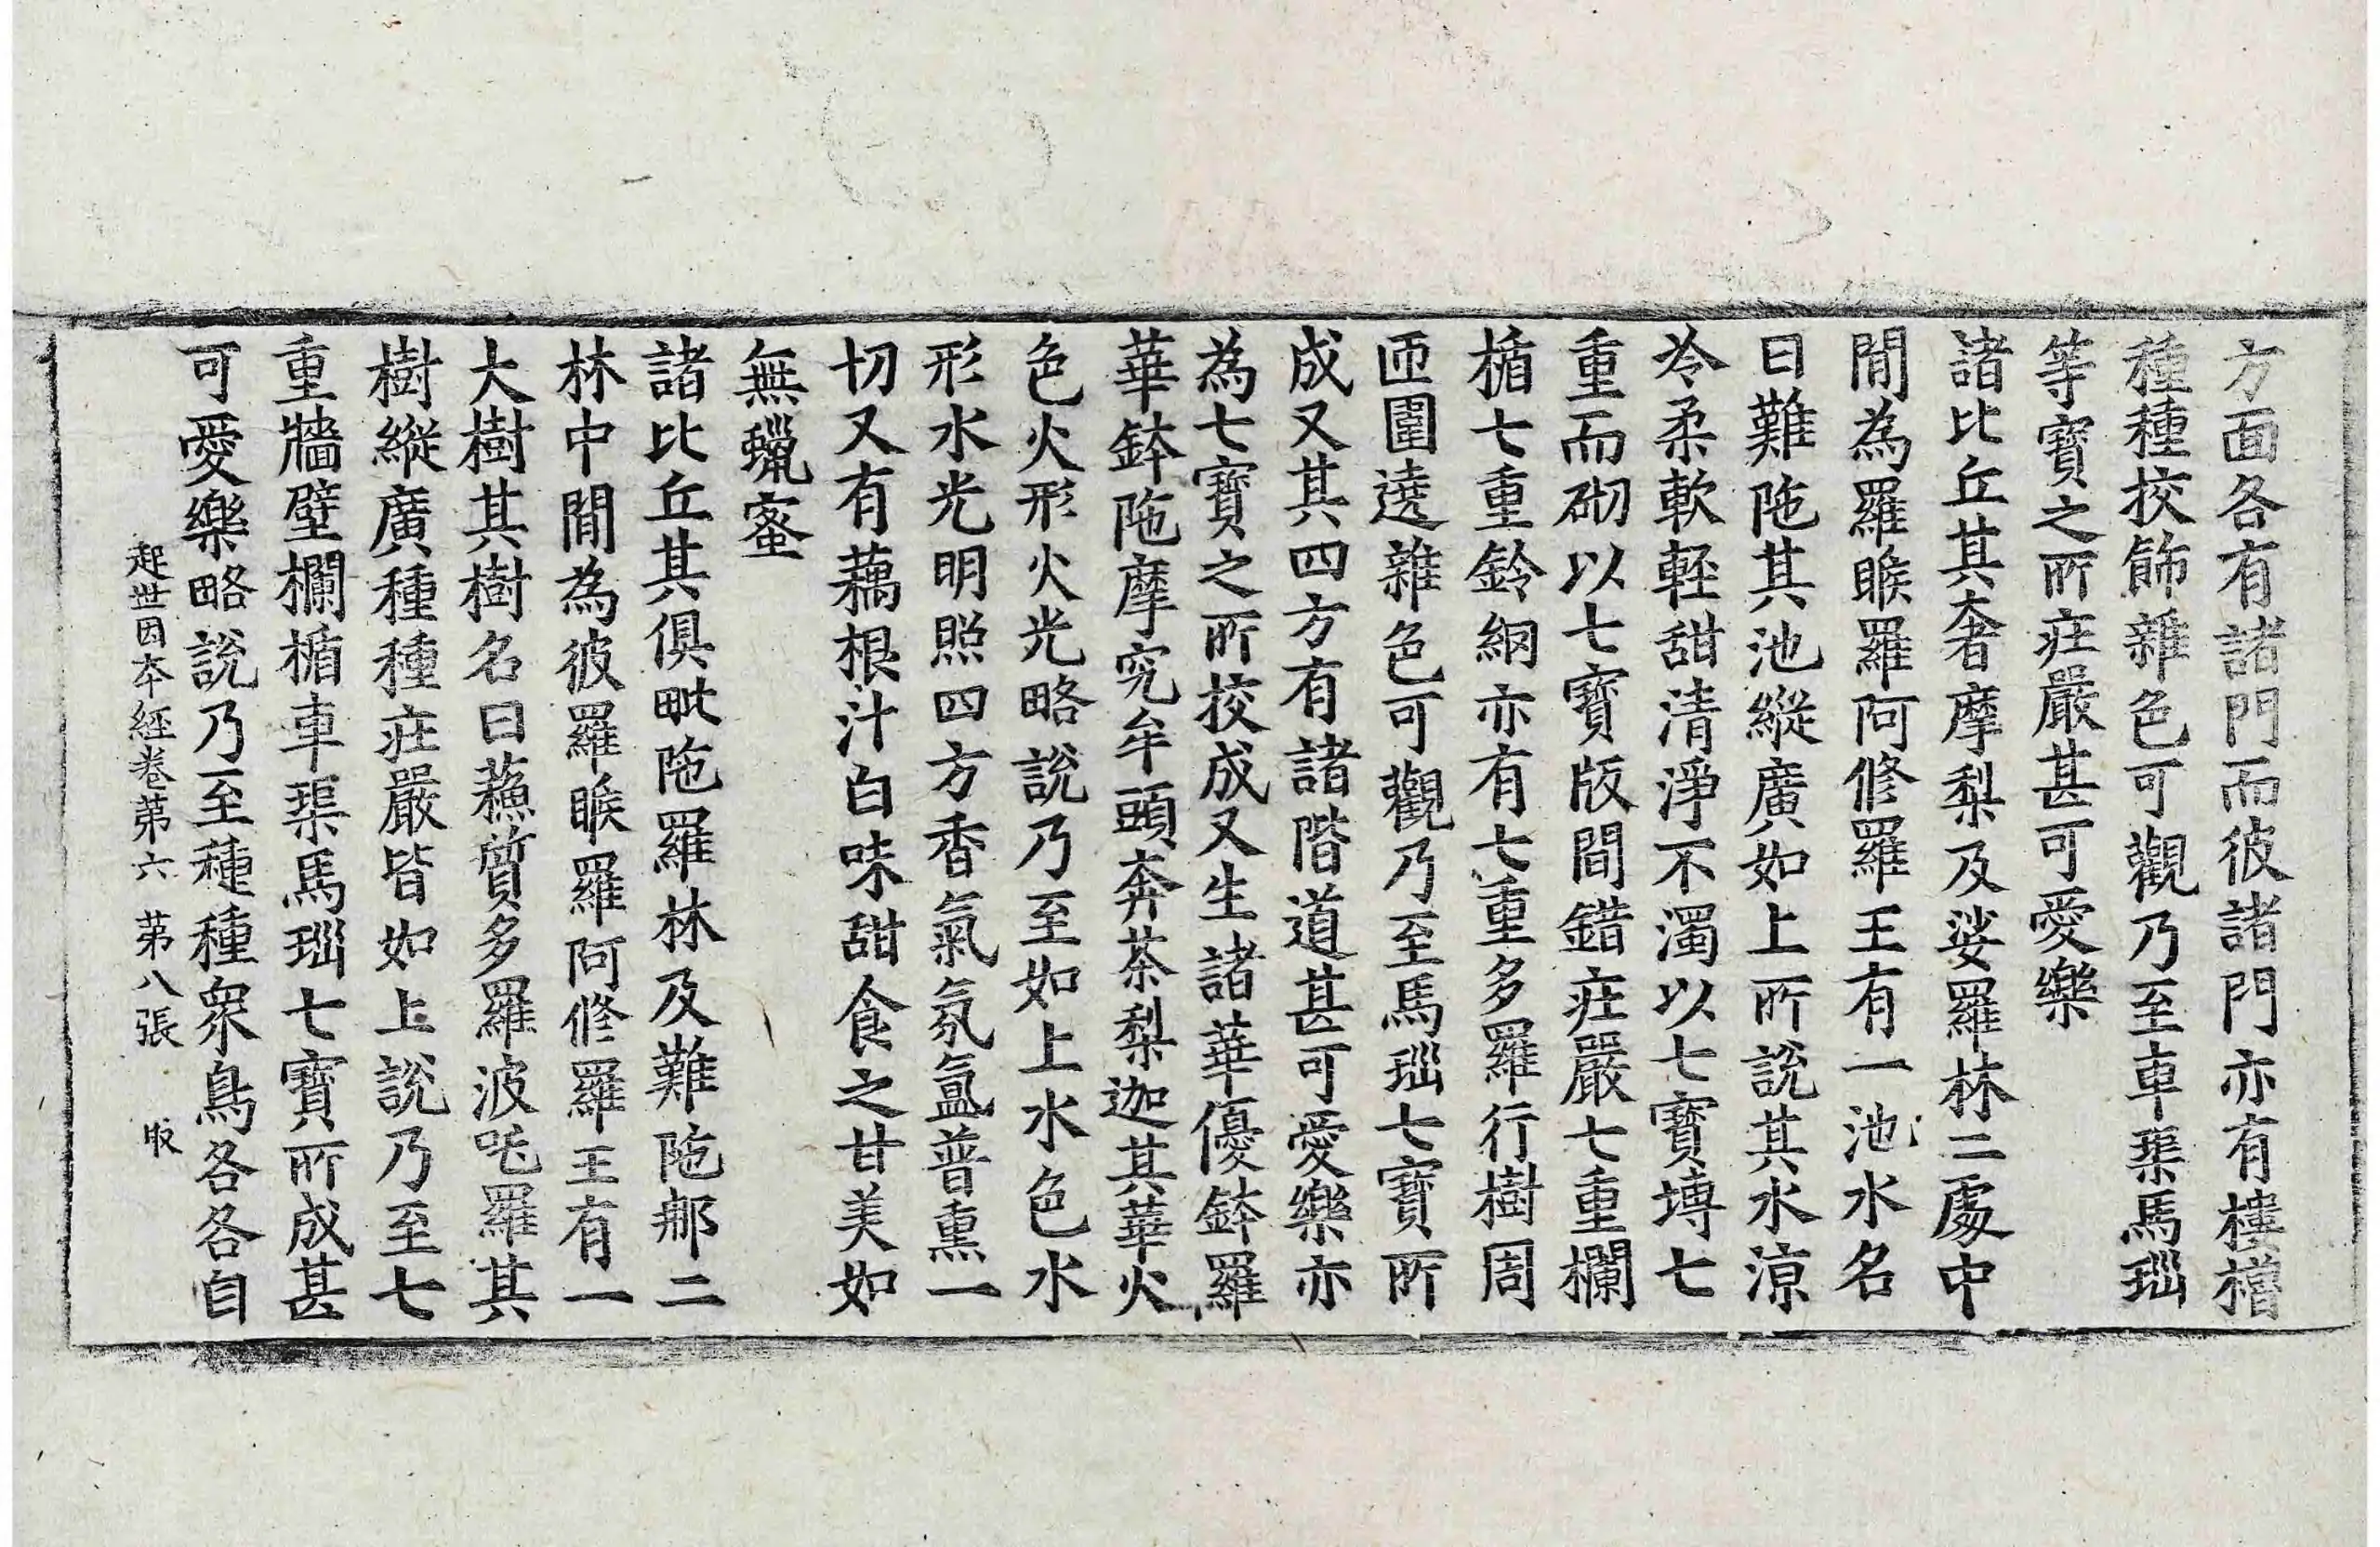 方面各有諸門而彼諸門亦有樓櫓
種種挍飾雜色可觀乃至車𤦲馬瑙
等寶之所莊嚴甚可愛樂
諸比丘其奢摩梨及娑羅林二處中
閒為羅睺羅阿修羅王有一池水名
曰難陁其池縱廣如上所說其水涼
冷柔軟輕甜清淨不濁以七寶塼七
重而砌以七寶版間錯莊嚴七重欄
楯七重鈴網亦有七重多羅行樹周
匝圍遶雜色可觀乃至馬瑙七寶所
成又其四方有諸階道甚可愛樂亦
為七寶之所挍成又生諸華優鉢羅
華鉢陁摩究牟頭奔茶梨迦其華火
色火形火光略說乃至如上水色水
形水光明照四方香氣氛氳普熏一
切又有藕根汁白味甜食之甘美如
無蠟蜜
諸比丘其俱毗陁羅林及難陁那二
林中閒為彼羅睺羅阿修羅王有一
大樹其樹名曰蘓質多羅波吒羅其
樹縱廣種種莊嚴皆如上說乃至七
重牆壁欄楯車𤦲馬瑙七寶所成甚
可愛樂略說乃至種種眾鳥各各自
起世因本經卷第六 第八張 取